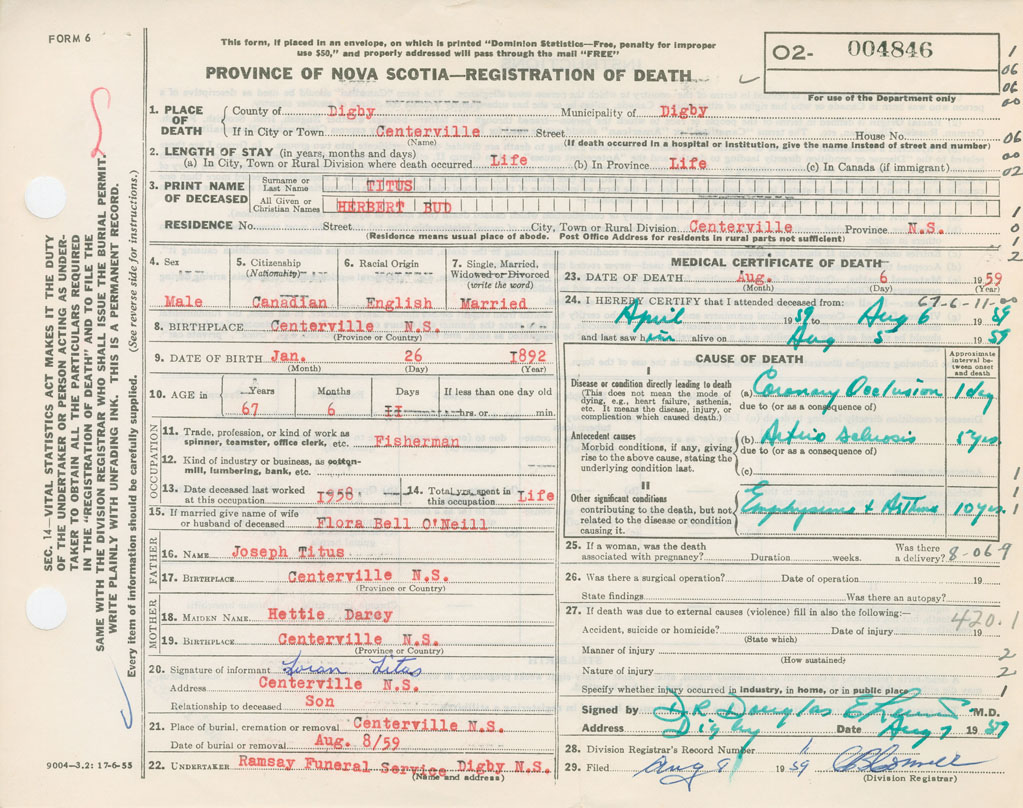 FORM 6
This form, if placed in an envelope, on which is printed "Dominion Statistics—Free, penalty for improper
use $50," and properly addressed will pass through the mail "FREE"
PROVINCE OF NOVA SCOTIA—REGISTRATION OF DEATH
O2- 004846
For use of the Department only
1
06
06
00
SEC. 14—VITAL STATISTICS ACT MAKES IT THE DUTY
OF THE UNDERTAKER OR PERSON ACTING AS UNDER-
TAKER TO OBTAIN ALL THE PARTICULARS REQUIRED
IN THE "REGISTRATION OF DEATH" AND TO FILE THE
SAME WITH THE DIVISION REGISTRAR WHO SHALL ISSUE THE BURIAL PERMIT.
WRITE PLAINLY WITH UNFADING INK. THIS IS A PERMANENT RECORD.
Every item of information should be carefully supplied. (See reverse side for instructions.)
1. PLACE OF DEATH
County of Digby Municipality of Digby
If in City or Town Centerville Street House No. 06
(Name) (If death occurred in a hospital or institution, give the name instead of street and number)
2. LENGTH OF STAY (in years, months and days) 00
(a) In City, Town or Rural Division where death occurred Life (b) In Province Life (c) In Canada (if immigrant) 02
3. PRINT NAME OF DECEASED
Surname or Last Name TITUS
All Given or Christian Names HERBERT BUD 1
RESIDENCE No. Street City, Town or Rural Division Centerville Province N.S. 0
(Residence means usual place of abode. Post Office Address for residents in rural parts not sufficient) 1
2
4. Sex
Male
5. Citizenship
(Nationality)
Canadian
6. Racial Origin
English
7. Single, Married,
Widowed or Divorced
(write the word)
Married
8. BIRTHPLACE Centerville N.S.
(Province or Country)
9. DATE OF BIRTH Jan. 26 1892
(Month) (Day) (Year)
10. AGE in Years Months Days If less than one day old
67 6 II hrs. or min.
OCCUPATION
11. Trade, profession, or kind of work as
spinner, teamster, office clerk, etc. Fisherman
12. Kind of industry or business, as cotton-
mill, lumbering, bank, etc.
13. Date deceased last worked
at this occupation 1958
14. Total yrs. spent in
this occupation Life
15. If married give name of wife
or husband of deceased Flora Bell O'Neill
FATHER
16. NAME Joseph Titus
17. BIRTHPLACE Centerville N.S.
(Province or Country)
MOTHER
18. MAIDEN NAME Hettie Darcy
19. BIRTHPLACE Centerville N.S.
(Province or Country)
20. Signature of informant Loran Titus
Address Centerville N.S.
Relationship to deceased Son
21. Place of burial, cremation or removal Centerville N.S.
Date of burial or removal Aug. 8/59
22. UNDERTAKER Ramsay Funeral Service Digby N.S.
(Name and address)
9004—3.2: 17-6-55
MEDICAL CERTIFICATE OF DEATH
23. DATE OF DEATH Aug. 6 1959
(Month) (Day) (Year)
24. I HEREBY CERTIFY that I attended deceased from: 67-6-11-00
April 1959 to Aug 6 1959
and last saw him alive on Aug 5 1959
CAUSE OF DEATH
Approximate interval between onset and death
I
Disease or condition directly leading to death
(This does not mean the mode of
dying, e.g., heart failure, asthenia,
etc. It means the disease, injury, or
complication which caused death.)
(a) Coronary Occlusion 1 day
due to (or as a consequence of)
Antecedent causes
Morbid conditions, if any, giving
rise to the above cause, stating the
underlying condition last.
(b) Arterio sclerosis 5 yrs
due to (or as a consequence of)
(c) 1
II
Other significant conditions
contributing to the death, but not
related to the disease or condition
causing it.
Emphysema + Asthma 10 yrs. 1
1
25. If a woman, was the death
associated with pregnancy? Duration weeks. Was there
a delivery? 8-06-9
26. Was there a surgical operation? Date of operation 19
State findings Was there an autopsy?
27. If death was due to external causes (violence) fill in also the following:—
420.1
Accident, suicide or homicide? Date of injury 19
(State which)
Manner of injury 2
(How sustained)
Nature of injury 2
Specify whether injury occurred in industry, in home, or in public place 1
Signed by DR Douglas M.D.
Address Digby Date Aug 7 1959
28. Division Registrar's Record Number
29. Filed Aug 1959
(Division Registrar)